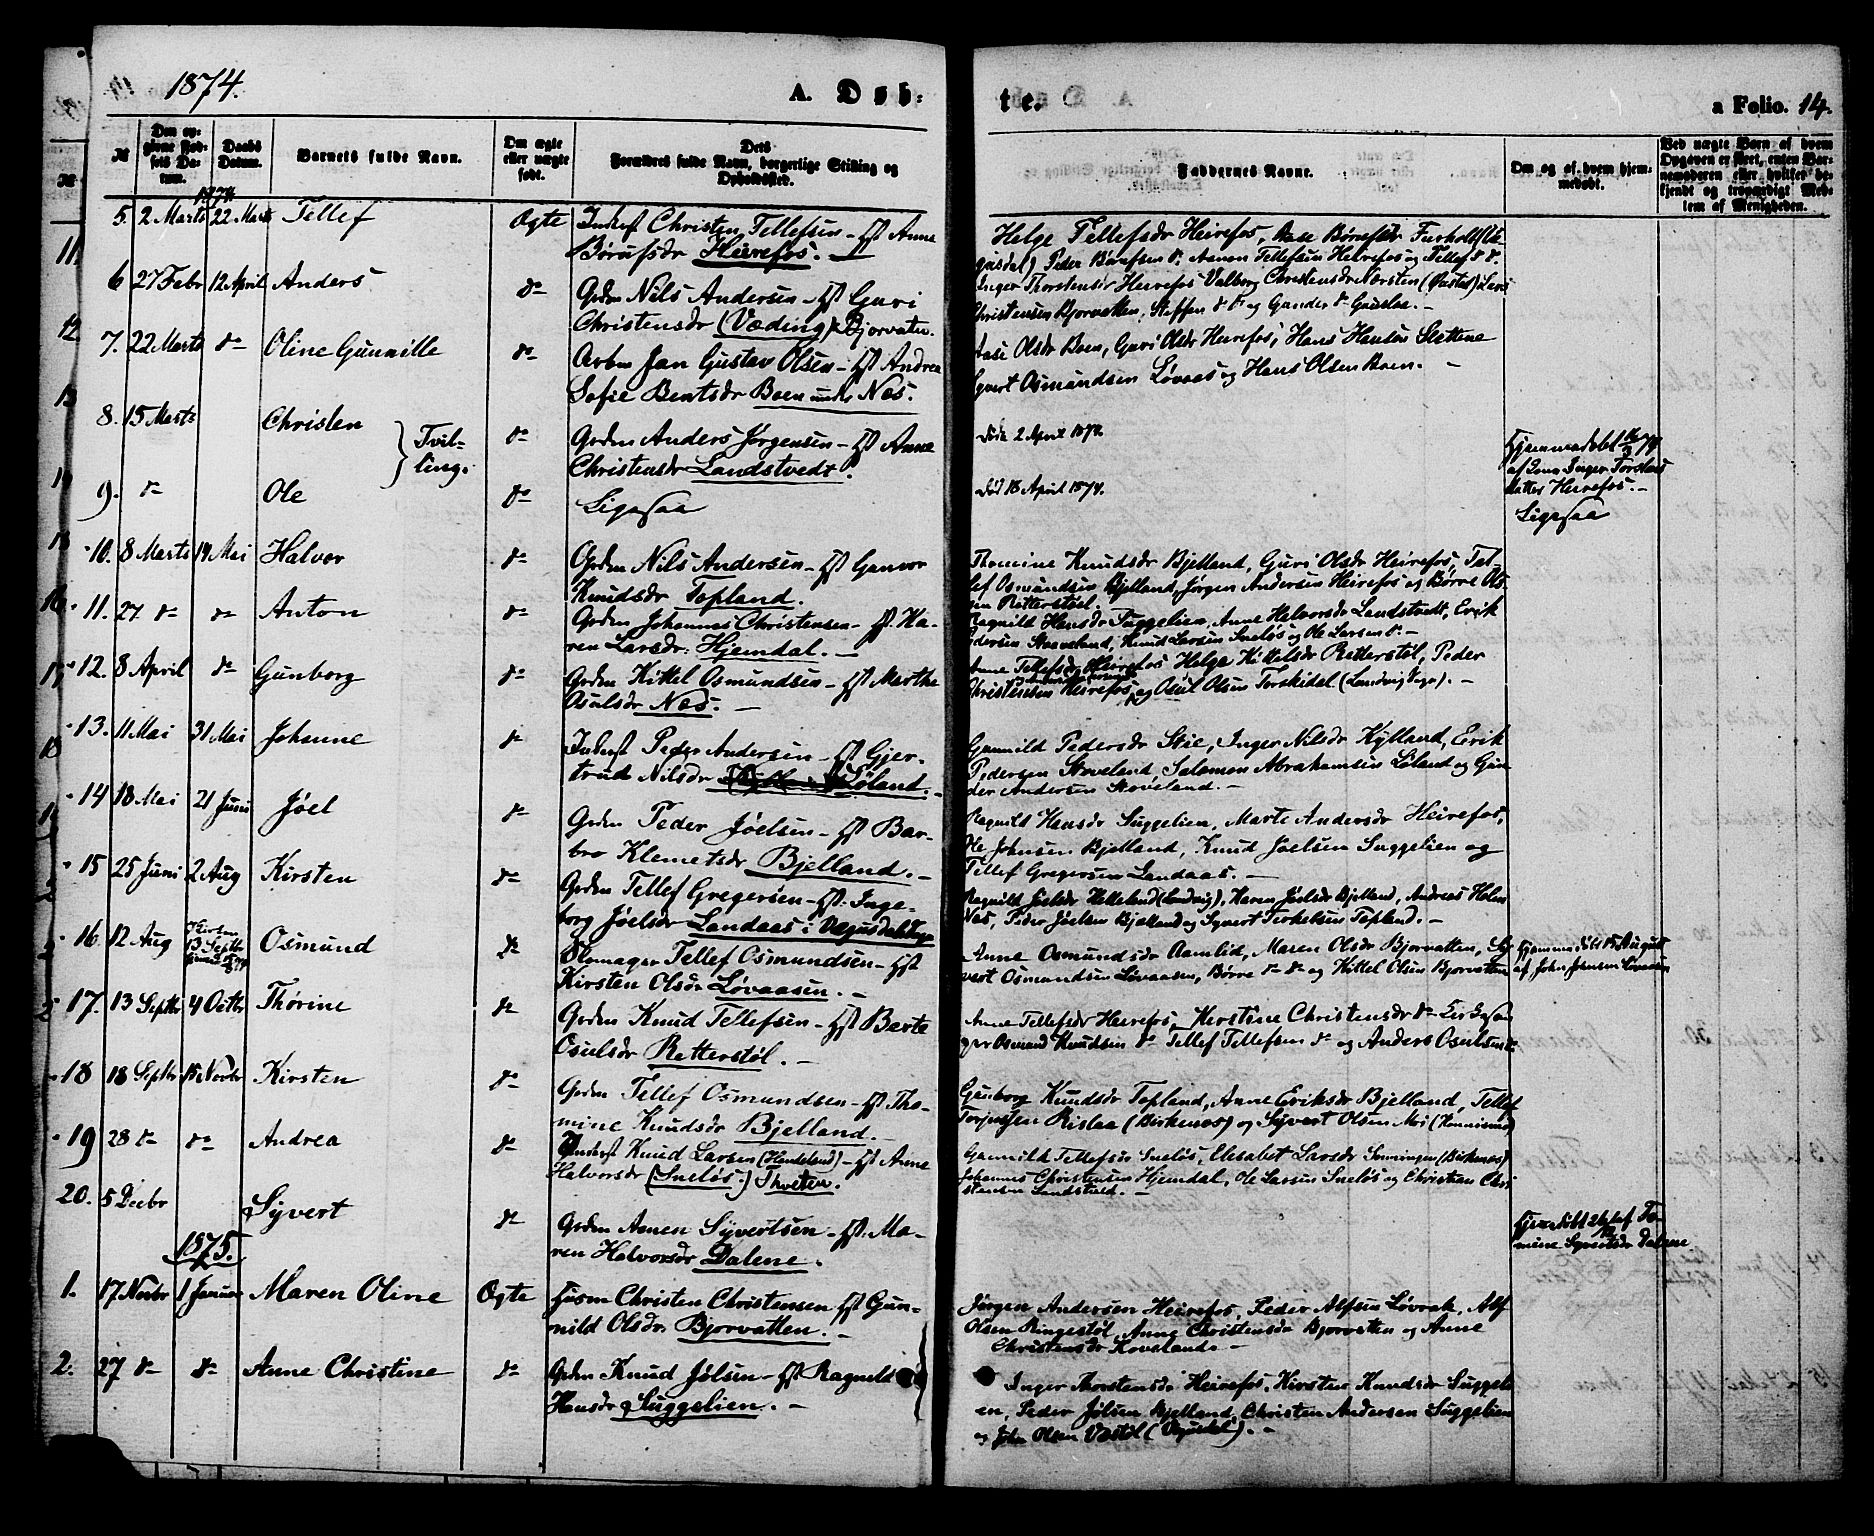 1874.
A. Døb-
te.
a Folio. 14.
№
Den opgivne Fødsels Datum.
Daabs Datum.
Barnets fulde Navn.
Om ægte eller uægte født.
Dets Forældres fulde Navn, borgerlige Stilling og Opholdssted.
Faddernes Navne.
Om og af hvem hjemmedøbt.
Ved uægte Børn af hvem Opgaven er skeet, enten Barnemoderen eller hvilket bekjendt og troværdigt Medlem af Menigheden.
1874
5. 2 Marts 22 Marts Tellef Ægte Inderst Christen Tellefsen – Hst Anne
Børufsdr Heirefos. –
Helge Tellefsdr Heirefos, Aase Børufsdr
Peder Børufsen do. Aanon Tellefsen Heirefos og Tellef do do.
6 27 Febr 12 April Anders do Grdm Nils Andersen – Hst Guri
Christensdr (Væding) Bjorvatn.
Inger Thorstensdr Heirefos Valborg Christensdr
Christensen Bjorvatten, Steffen do do og Gunder do
7. 22 Marts do Oline Gunnille do Arbm Jan Gustav Olsen – Hst Andrea
Sofie Bentsdr Boen under Næs.
Aase Olsdr Boen, Guri Olsdr Heirefos, Hans Hansen Slettene
Syvert Osmundsen Løvaas og Hans Olsen Boen. –
8. 15 Marts Christen Tvilling. do Grdm Anders Jørgensen – Hst Anne
Christensdr Landstvedt.
Død 2 April 1874.
Hjemmedøbt 16/3 74
af Inger Torstens
Datter Heirefos. –
9. do Ole do Ligesaa
Død 18 April 1874.
Ligesaa
10. 8 Marts 14 Mai Halvor do Grdm Nils Andersen – Hst Gunvor
Knudsdr Topland.
Thomine Knudsdr Bjelland, Guri Olsdr Heirefos, Tel-
lef Osmundsen Bjelland, Jørgen Andersen Heirefos og Børre Ol-
sen Retterstøl.
11. 27 do do Anton do Grdm Johannes Christensen – Hst. Ka-
ren Larsdr. Hjemdal. –
Ragnild Hansdr Suggelien, Anne Halvorsdr Landstvedt, Erik
Pedersen Stoveland, Knud Larsen Sneløs og Ole Larsen do. –
12. 8 April do Gunborg do Grdm Kittel Osmundsen – Hst Marthe
Osulsdr Næs. –
Anne Tellefsdr Heirefos Helge Kittelsdr Retterstøl, Peder
Christensen Heirefos og Osul Olsen Torskedal (Landvig Sogn). –
13. 11 Mai 31 Mai Johanne do Inderst Peder Andersen – Hst Gjer-
trud Nilsdr Løland. –
Gunnild Pedersdr Stie, Inger Nilsdr Kylland, Erik
Pedersen Stoveland, Salomon Abrahamsen Løland og Gun-
der Andersen Stoveland. –
14 18 Mai 21 Juni Jøel do Grdm Peder Jøelsen – Hst Bar-
bro Klemetsdr Bjelland. –
Ragnild Hansdr Suggelien, Marte Andersdr Heirefos,
Ole Johnsen Bjelland, Knud Jøelsen Suggelien og
Tellef Gregersen Landaas. –
15 25 Juni 2 Aug Kirsten do Grdm Tellef Gregersen – Hst. Inge-
borg Jøelsdr Landaas i Vegusdals Sogn
Ragnild Jøelsdr Helleland (Landvig), Karen Jøelsdr Bjelland, Andreas Holm
Næs, Peder Jøelsen Bjelland og Syvert Terkelsen Topland. –
16. 12 Aug 13 Septbr Osmund do Skomager Tellef Osmundsen – Hst
Kirsten Olsdr Løvaasen. –
Anne Osmundsdr Aamlid, Maren Olsdr Bjorvatten, Sy-
vert Osmundsen Løvaasen, Børre do do og Kittel Olsen Bjorvatten
Hjemmedøbt 15 August
af John Johnsen Løvaasen
17. 13 Septbr 4 Octbr Thorine do Grdm Knud Tellefsen – Hst Berte
Osulsdr Retterstøl. –
Anne Tellefsdr Heirefos, Kirstine Christensdr do Kirkesan-
ger Osmund Knudsen do Tellef Tellefsen do og Anders Osulsen do.
18 18 Septbr 15 Novbr Kirsten do Grdm Tellef Osmundsen – Hst Tho-
mine Knudsdr Bjelland. –
Gunborg Knudsdr Topland, Anne Eriksdr Bjelland, Tellef
Torjussen Rislaa (Birkenæs) og Syvert Olsen Moi
19 28 do do Andrea do Inderst Knud Larsen – Hst Anne
Halvorsdr (Sneløs.) Thveten.
Gunnild Tellefsdr Sneløs, Elisabet Larsdr (Birkenæs)
Johannes Christensen Hjemdal, Ole Larsen Sneløs og Christian Chri-
stensen Landstvedt. –
20. 5 Decbr Syvert do Grdm Aanen Syvertsen – Hst. Ma-
ren Halvorsdr Dalene.
Hjemmedøbt af To-
mine Syvertsdr Dalene
1875.
1. 17 Novbr 1 Januar Maren Oline Ægte Husm Christen Christensen – Hst Gun-
nild Olsdr. Bjorvatten. –
Jørgen Andersen Heirefos, Peder Alfsen Løvrak, Alf
Olsen Ringestøl, Anne Christensdr Bjorvatten og Anne
Christensdr Hoveland. –
2. 27 do do Anne Christine do Grdm Knud Jølsen – Hst Ragnild
Hansdr Suggelien. –
Inger Thorstensdr Heirefos, Kirsten Knudsdr Suggeli-
en, Peder Jølsen Bjelland, Christen Andersen Suggelien
og John Olsen Vestøl (Vegusdal). –